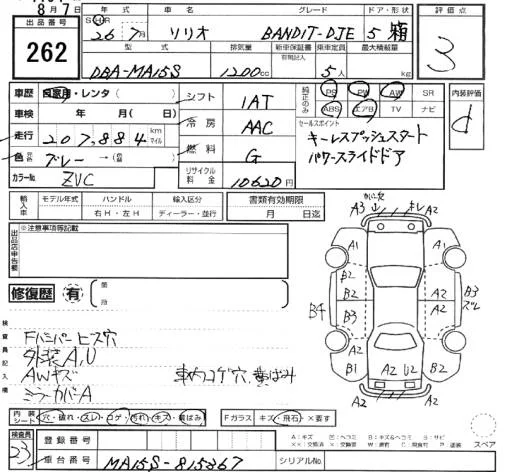 8月7日
出品番号 262
年式 26年7月
車名 ソリオ
グレード BANDIT-DJE
ドア・形状 5 箱
評価点 3
型式 DBA-MA15S
排気量 1200cc
新車保証書 有閲記入
乗車定員 5人
最大積載量 kg
車歴 自家用・レンタ( )
車検 年 月( 日)
走行 207,884 km マイル
色 グレー→(
カラーNo. ZVC
シフト 1AT
冷房 AAC
燃料 G
リサイクル料金 10620円
純正のみ PS PW AW SR
ABS エアB TV ナビ
内装評価 d
セールスポイント
キーレスプッシュスタート
パワースライドドア
輸入車 モデル年式 ハンドル 輸入区分
右H・左H ディーラー・並行
書類有効期限
月 日迄
出品店申告欄 ※注意事項等記載
修復歴 有 箇所
検査員記入欄
Fバンパービス穴
外装A,U
AWキズ
ミラーカバーA
車内コゲ穴,黄ばみ
A3 キレ A2
A1 A1
B2 A2
B4 B2 A2 B3 ズレ
B3 A2
A2 A2
B1 A2 U2 B2
A2 A2
内装シート 穴・破れ・スレ・コゲ・汚れ・キズ・黄ばみ
Fガラス キズ・飛石・×要す
スペア
検査員 23
登録番号
車台番号 MA15S-815367
シリアルNo.